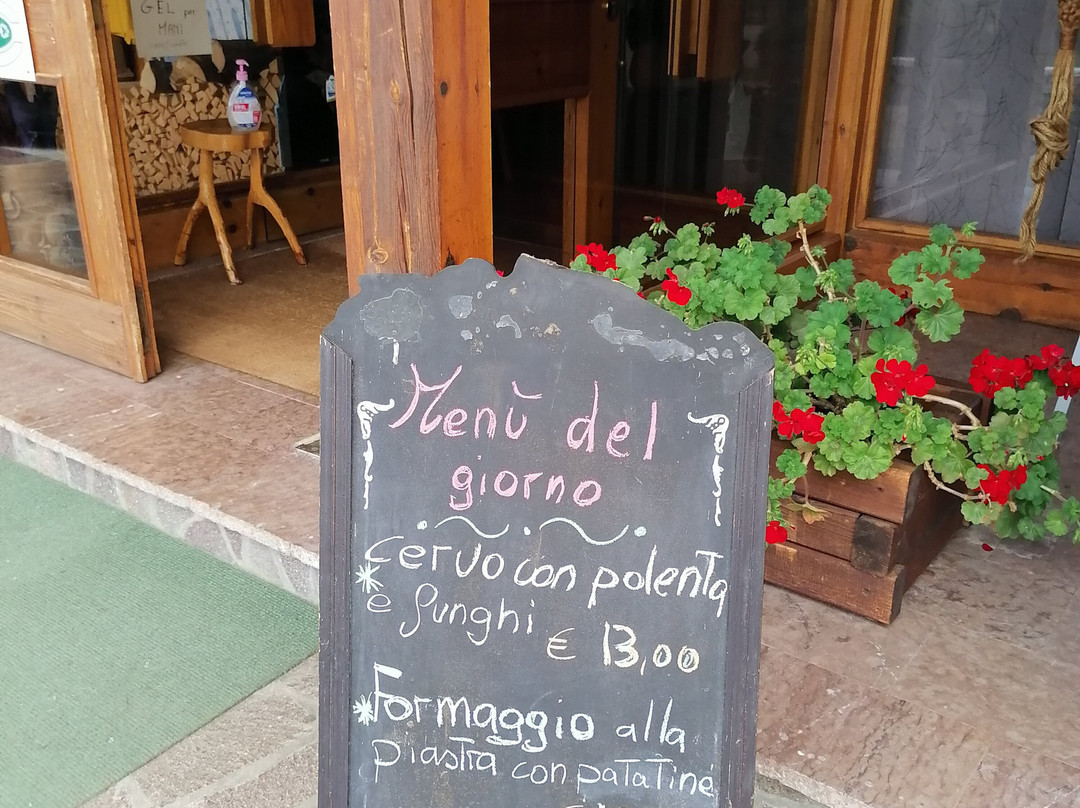 GEL per
MANI
Menù del
giorno
cervo con polenta
* e funghi
€ 13,00
* Formaggio alla
piastra con patatine